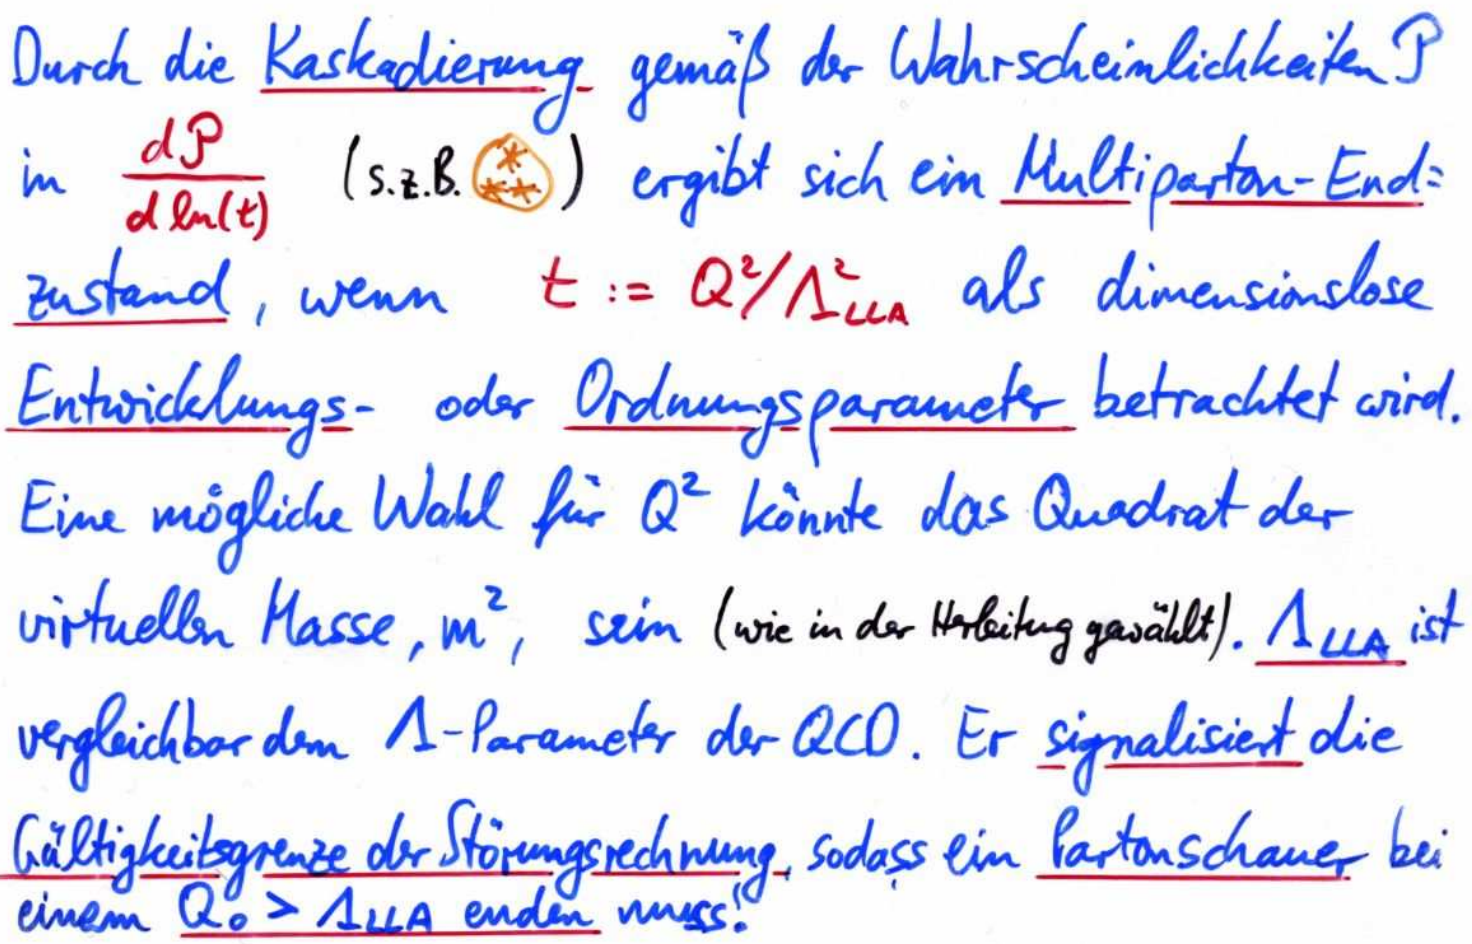 Durch die Kaskadierung gemäß der Wahrscheinlichkeiten P
in dP/d ln(t) (s.z.B. ***) ergibt sich ein Multiparton-End=
zustand, wenn t := Q²/Λ²_LLA als dimensionslose
Entwicklungs- oder Ordnungsparameter betrachtet wird.
Eine mögliche Wahl für Q² könnte das Quadrat der
virtuellen Masse, m², sein (wie in der Herleitung gewählt). Λ_LLA ist
vergleichbar dem Λ-Parameter der QCD. Er signalisiert die
Gültigkeitsgrenze der Störungsrechnung, sodass ein Partonschauer bei
einem Q₀ > Λ_LLA enden muss!